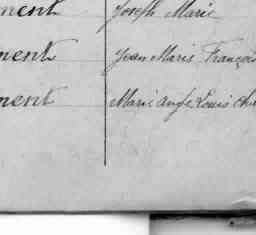 ment Joseph Marie
ment Jean Marie François
ment Marie Ange Louis